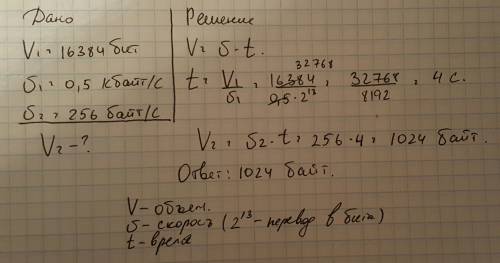 Дано
V₁ = 16384 бит
υ₁ = 0,5 Кбайт/с
υ₂ = 256 байт/с
V₂ – ?
Решение
V = υ · t.
t = V₁/υ₁ = 16384/0,5 · 2¹³ = 32768/8192 = 4 с.
32768
V₂ = υ₂ · t = 256 · 4 = 1024 байт.
Ответ: 1024 байт.
V – объем.
υ – скорость (2¹³ – перевод в биты)
t – время